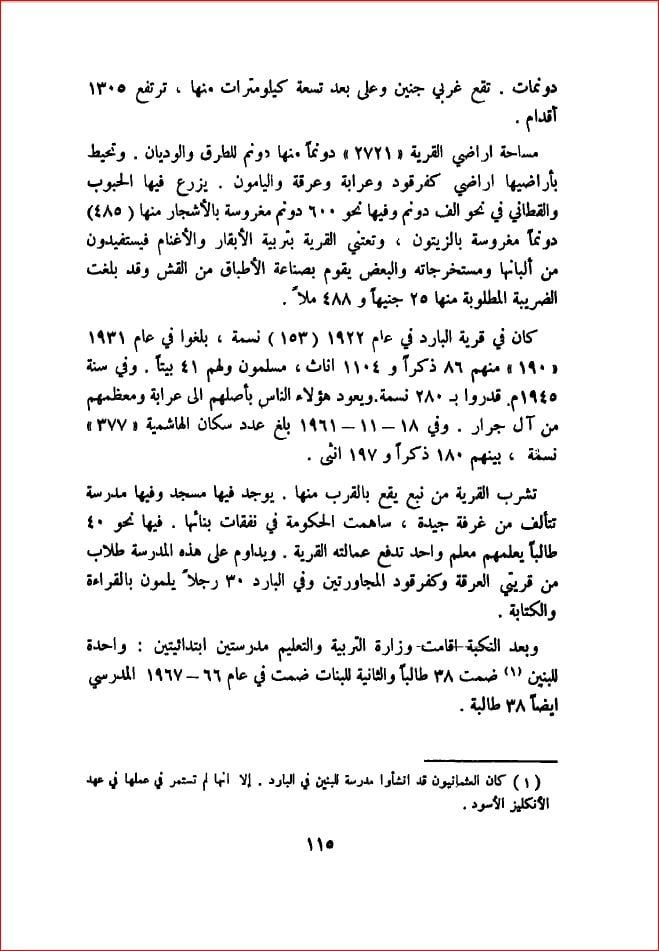 دونمات . تقع غربي جنين وعلى بعد تسعة كيلومترات منها ، ترتفع ١٣٠٥
أقدام .
مساحة اراضي القرية «٢٧٢١» دونماً منها دونم للطرق والوديان . وتحيط
بأراضيها اراضي كفرقود وعرابة وعرقة واليامون . يزرع فيها الحبوب
والقطاني في نحو الف دونم وفيها نحو ٦٠٠ دونم مغروسة بالأشجار منها (٤٨٥)
دونماً مغروسة بالزيتون ، وتعتني القرية بتربية الأبقار والأغنام فيستفيدون
من ألبانها ومستخرجاته والبعض يقوم بصناعة الأطباق من القش وقد بلغت
الضريبة المطلوبة منها ٢٥ جنيهاً و ٤٨٨ ملاً .
كان في قرية البارد في عام ١٩٢٢ (١٥٣) نسمة ، بلغوا في عام ١٩٣١
«١٩٠» منهم ٨٦ ذكراً و ١١٠٤ اناث، مسلمون ولهم ٤١ بيتاً . وفي سنة
١٩٤٥م. قدروا بـ ٢٨٠ نسمة.ويعود هؤلاء الناس بأصلهم الى عرابة ومعظمهم
من آل جرار . وفي ١٨ – ١١ – ١٩٦١ بلغ عدد سكان الهاشمية «٣٧٧»
نسمة ، بينهم ١٨٠ ذكراً و ١٩٧ انثى .
تشرب القرية من نبع يقع بالقرب منها . يوجد فيها مسجد وفيها مدرسة
تتألف من غرفة جيدة ، ساهمت الحكومة في نفقات بنائها . فيها نحو ٤٠
طالباً يعلمهم معلم واحد تدفع عمالته القرية . ويداوم على هذه المدرسة طلاب
من قريتي العرقة وكفرقود المجاورتين وفي البارد ٣٠ رجلاً يلمون بالقراءة
والكتابة .
وبعد النكبة اقامت وزارة التربية والتعليم مدرستين ابتدائيتين : واحدة
للبنين (١) ضمت ٣٨ طالباً والثانية للبنات ضمت في عام ٦٦ – ١٩٦٧ المدرسي
ايضاً ٣٨ طالبة .
(١) كان العثمانيون قد انشأوا مدرسة للبنين في البارد . إلا انها لم تستمر في عملها في عهد
الأنكليز الأسود .
١١٥